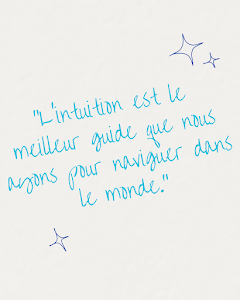 "L'intuition est le
meilleur guide que nous
ayons pour naviguer dans
le monde."